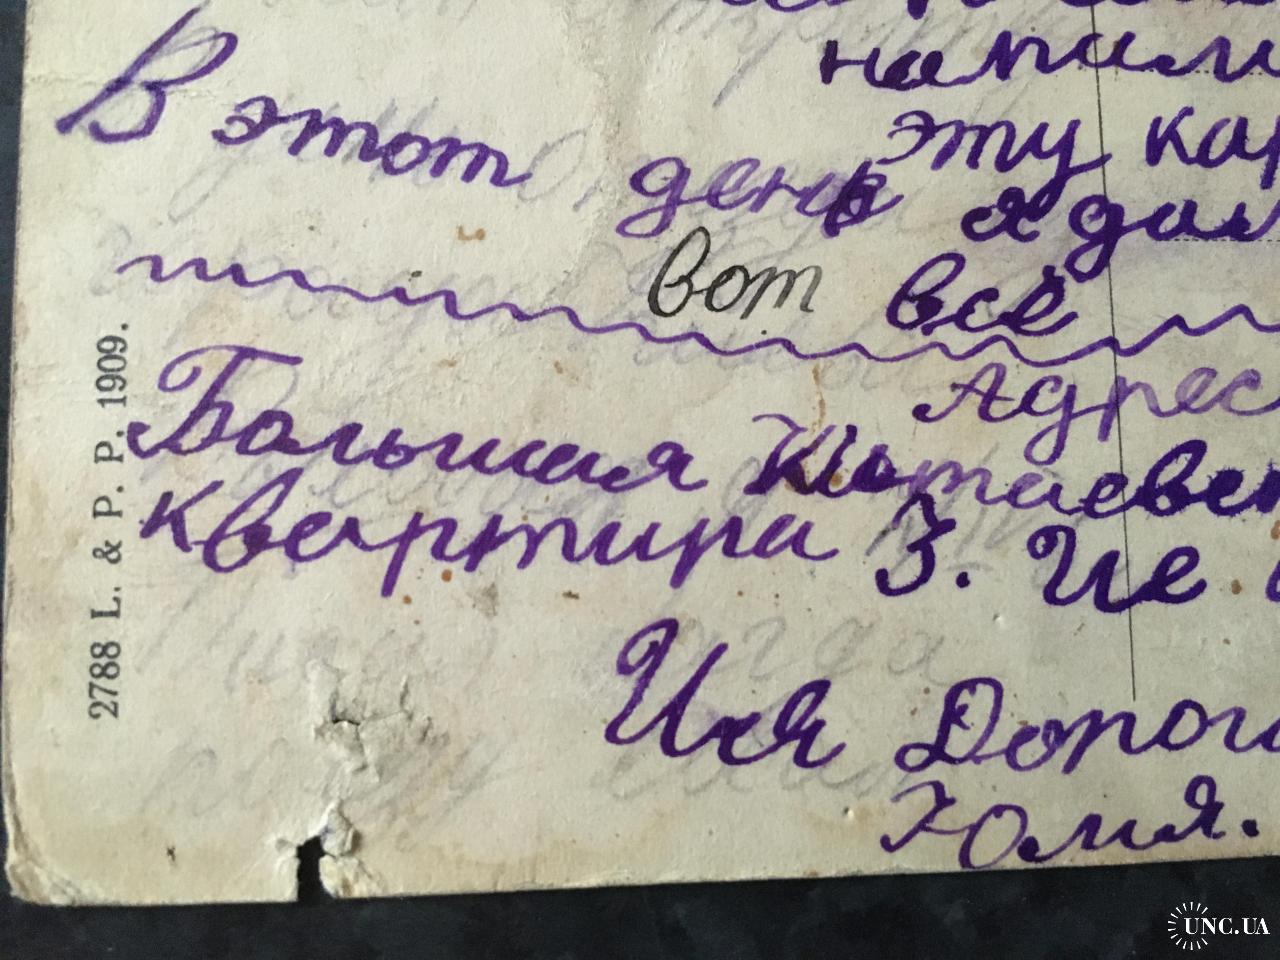 напили
В этот день эту кар
я дал
вот всё
Адрес
Большая Китаевск
квартира 3. Ие
Ия Дорог
Юлия.
2788 L. & P. P. 1909.
UNC.UA